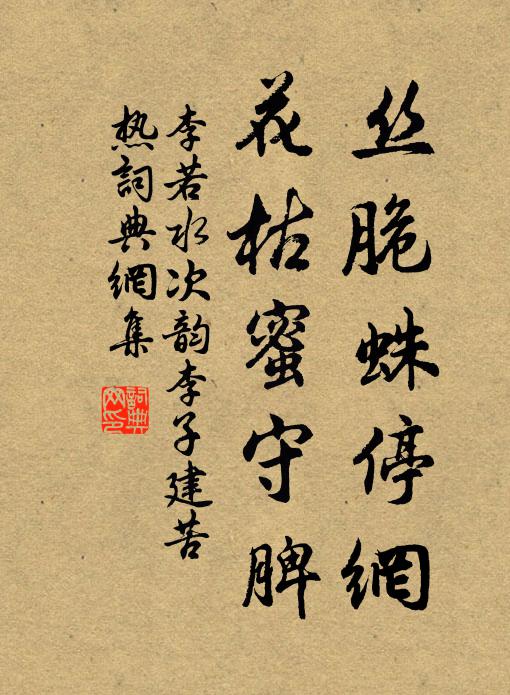 丝脆蛛停網
花枯蜜守脾
李若水次韵李子建苦
热詞典網集
詞典网印